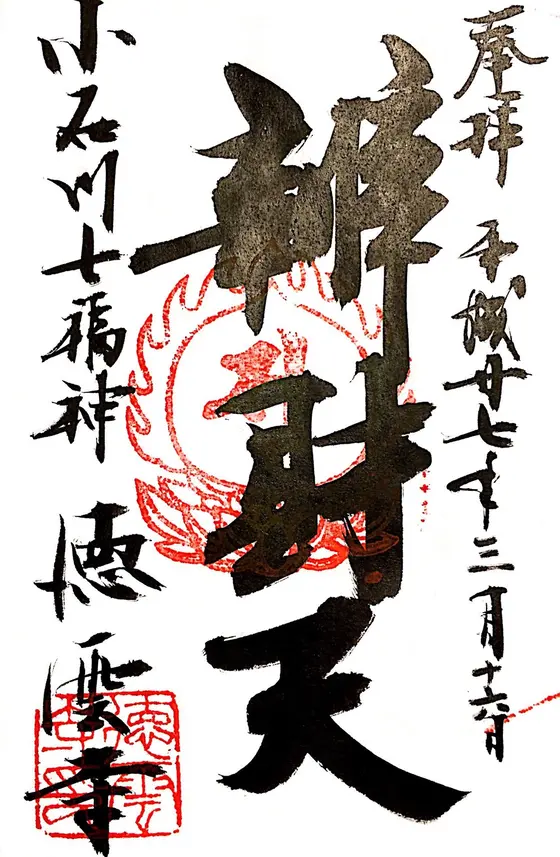 奉拝 平成廿七年三月十六日
辨財天
小石川七福神 徳雲寺
徳雲寺印